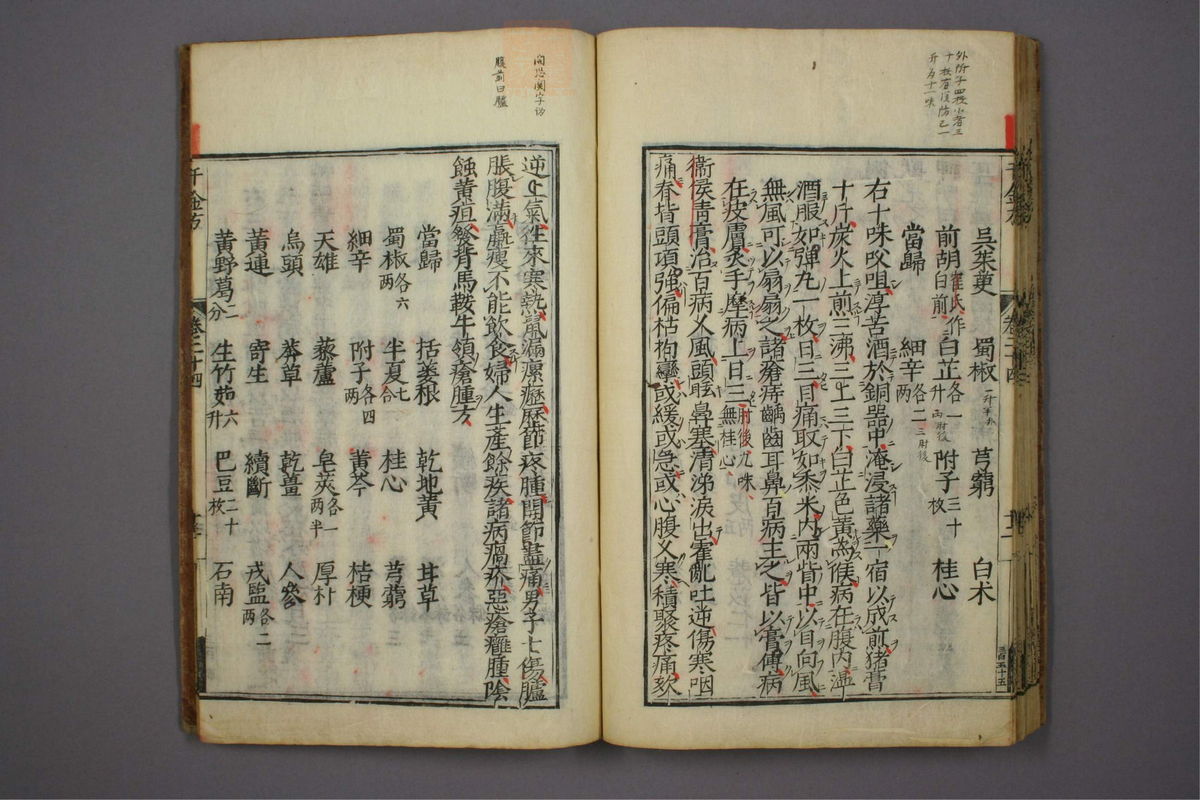 吳茱萸 蜀椒 芎藭 白朮
前胡崔氏作白前 白芷各一升 附子三十枚 桂心
當歸 細辛各二兩
右十味㕮咀淳苦酒於銅器中淹浸諸藥一宿以成煎猪膏
十斤炭火上煎三沸三上三下白芷色黃為候病在腹內溫
酒服如彈丸一枚日三目痛取如黍米內兩眥中以目向風
無風可以扇扇之諸瘡痔齲齒耳鼻百病主之皆以膏傅病
在皮膚炙手摩病上日三肘後九味無桂心
衞侯青膏治百病久風頭眩鼻塞清涕淚出霍亂吐逆傷寒咽
痛脊背頭項強偏枯拘攣或緩或急或心腹久寒積聚疼痛欬
逆上氣往來寒熱鼠漏瘰癧歷節疼腫關節盡痛男子七傷臚
脹腹滿羸瘦不能飲食婦人生產餘疾諸病瘑疥惡瘡癰腫陰
蝕黃疸發背馬鞍牛領瘡腫方
當歸 括蔞根 乾地黃 甘草
蜀椒各六兩 半夏七合 桂心 芎藭
細辛 附子各四兩 黃芩 桔梗
天雄 藜蘆 皂莢各一兩半 厚朴
烏頭 莽草 乾薑 人參
黃連 寄生 續斷 戎鹽各二兩
黃野葛二分 生竹茹六升 巴豆二十枚 石南
千金方
卷二十四
外附子四枚小者三
腹前曰臚